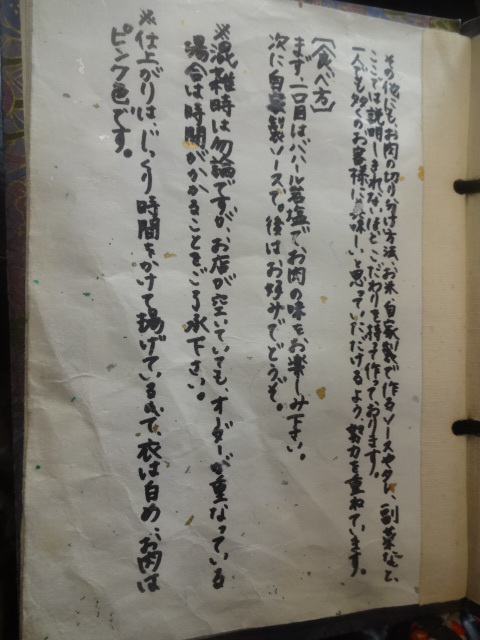 その他にも、お肉の切り分け方法、お米、自家製で作るソースやタレ、副菜など、
ここでは説明しきれないほど、こだわりを持って作っております。
一人でも多くのお客様に美味しいと思っていただけるよう、努力を重ねています。
【食べ方】
まず、一口目はパハール岩塩で、お肉の味をお楽しみ下さい。
次に自家製ソースで、後はお好みでどうぞ。
※混雑時は勿論ですが、お店が空いていても、オーダーが重なっている
場合は時間がかかることをご了承下さい。
※仕上がりは、じっくり時間をかけて揚げているので、衣は白め、お肉は
ピンク色です。